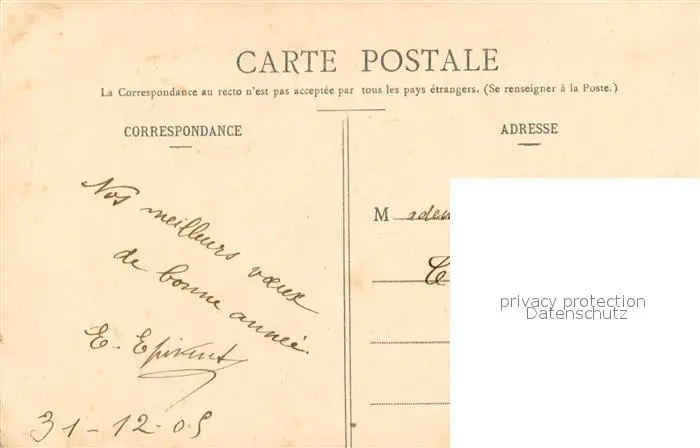 CARTE POSTALE
La Correspondance au recto n'est pas acceptée par tous les pays étrangers. (Se renseigner à la Poste.)
CORRESPONDANCE
Nos meilleurs vœux
de bonne année.
E. Epivent
31-12-05
ADRESSE
M
privacy protection
Datenschutz